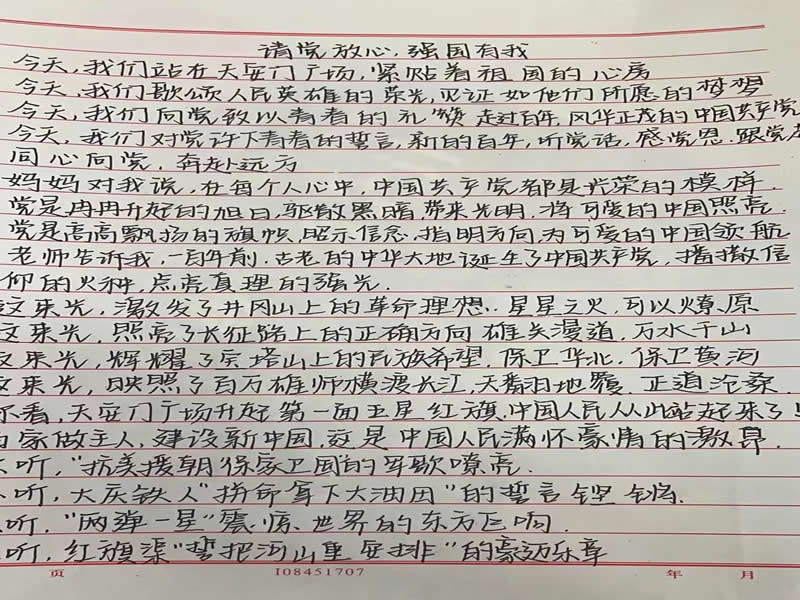 请党放心,强国有我
今天,我们站在天安门广场,紧贴着祖国的心房
今天,我们歌颂人民英雄的荣光,见证如他们所愿的梦想
今天,我们向党致以青春的礼赞 走过百年,风华正茂的中国共产党
今天,我们对党许下青春的誓言,新的百年,听党话,感党恩,跟党走
同心向党,奔赴远方
妈妈对我说,在每个人心中,中国共产党都是光荣的模样.
党是冉冉升起的旭日,驱散黑暗,带来光明,将可爱的中国照亮.
党是高高飘扬的旗帜,昭示信念,指明方向,为可爱的中国领航
老师告诉我,一百年前,古老的中华大地诞生了中国共产党,播撒信
仰的火种,点亮真理的强光.
这束光,激发了井冈山上的革命理想..星星之火,可以燎原
这束光,照亮了长征路上的正确方向 雄关漫道,万水千山
这束光,辉耀了宝塔山上的民族希望.保卫华北,保卫黄河
这束光,映照了百万雄师横渡长江,天翻地覆 正道沧桑.
看,天安门广场升起第一面五星红旗,中国人民从此站起来了!
家做主人,建设新中国,这是中国人民满怀豪情的激昂.
听,"抗美援朝保家卫国"的军歌嘹亮.
听,大庆铁人"拼命拿下大油田"的誓言铿锵.
听,"两弹一星"震惊世界的东方巨响.
听,红旗渠"誓把河山重安排"的豪迈乐章
页 I08451707 年 月